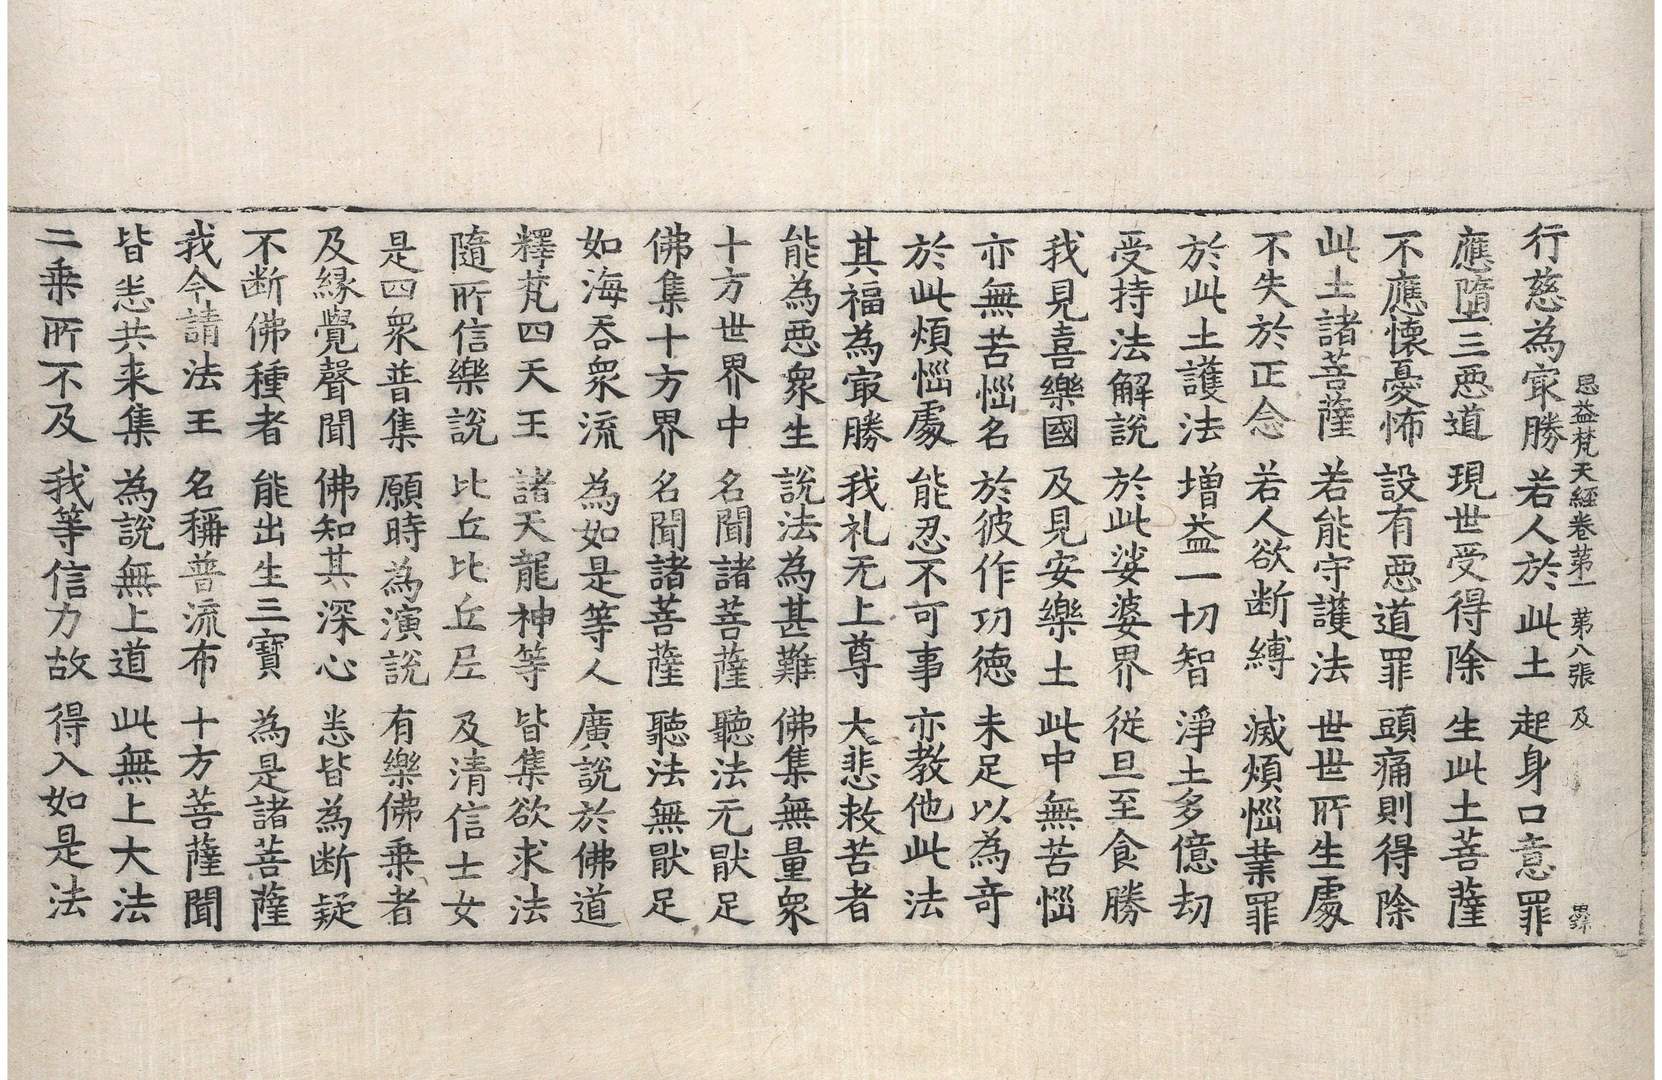 思益梵天經卷第一 第八張 及
行慈為㝡勝 若人於此土 起身口意罪
應墮三惡道 現世受得除 生此土菩薩
不應懷憂怖 設有惡道罪 頭痛則得除
此土諸菩薩 若能守護法 世世所生處
不失於正念 若人欲断縛 滅煩惱業罪
於此土護法 增益一切智 淨土多億劫
受持法解說 於此娑婆界 從旦至食勝
我見喜樂國 及見安樂土 此中無苦惱
亦無苦惱名 於彼作功德 未足以為奇
於此煩惱處 能忍不可事 亦教他此法
其福為㝡勝 我礼无上尊 大悲救苦者
能為惡衆生 說法為甚難 佛集無量衆
十方世界中 名聞諸菩薩 聽法无猒足
佛集十方界 名聞諸菩薩 聽法無猒足
如海吞衆流 為如是等人 廣說於佛道
釋梵四天王 諸天龍神等 皆集欲求法
隨所信樂說 比丘比丘尼 及清信士女
是四衆普集 願時為演說 有樂佛乗者
及緣覺聲聞 佛知其深心 悉皆為断疑
不断佛種者 能出生三寶 為是諸菩薩
我今請法王 名稱普流布 十方菩薩聞
皆悉共来集 為說無上道 此無上大法
二乗所不及 我等信力故 得入如是法